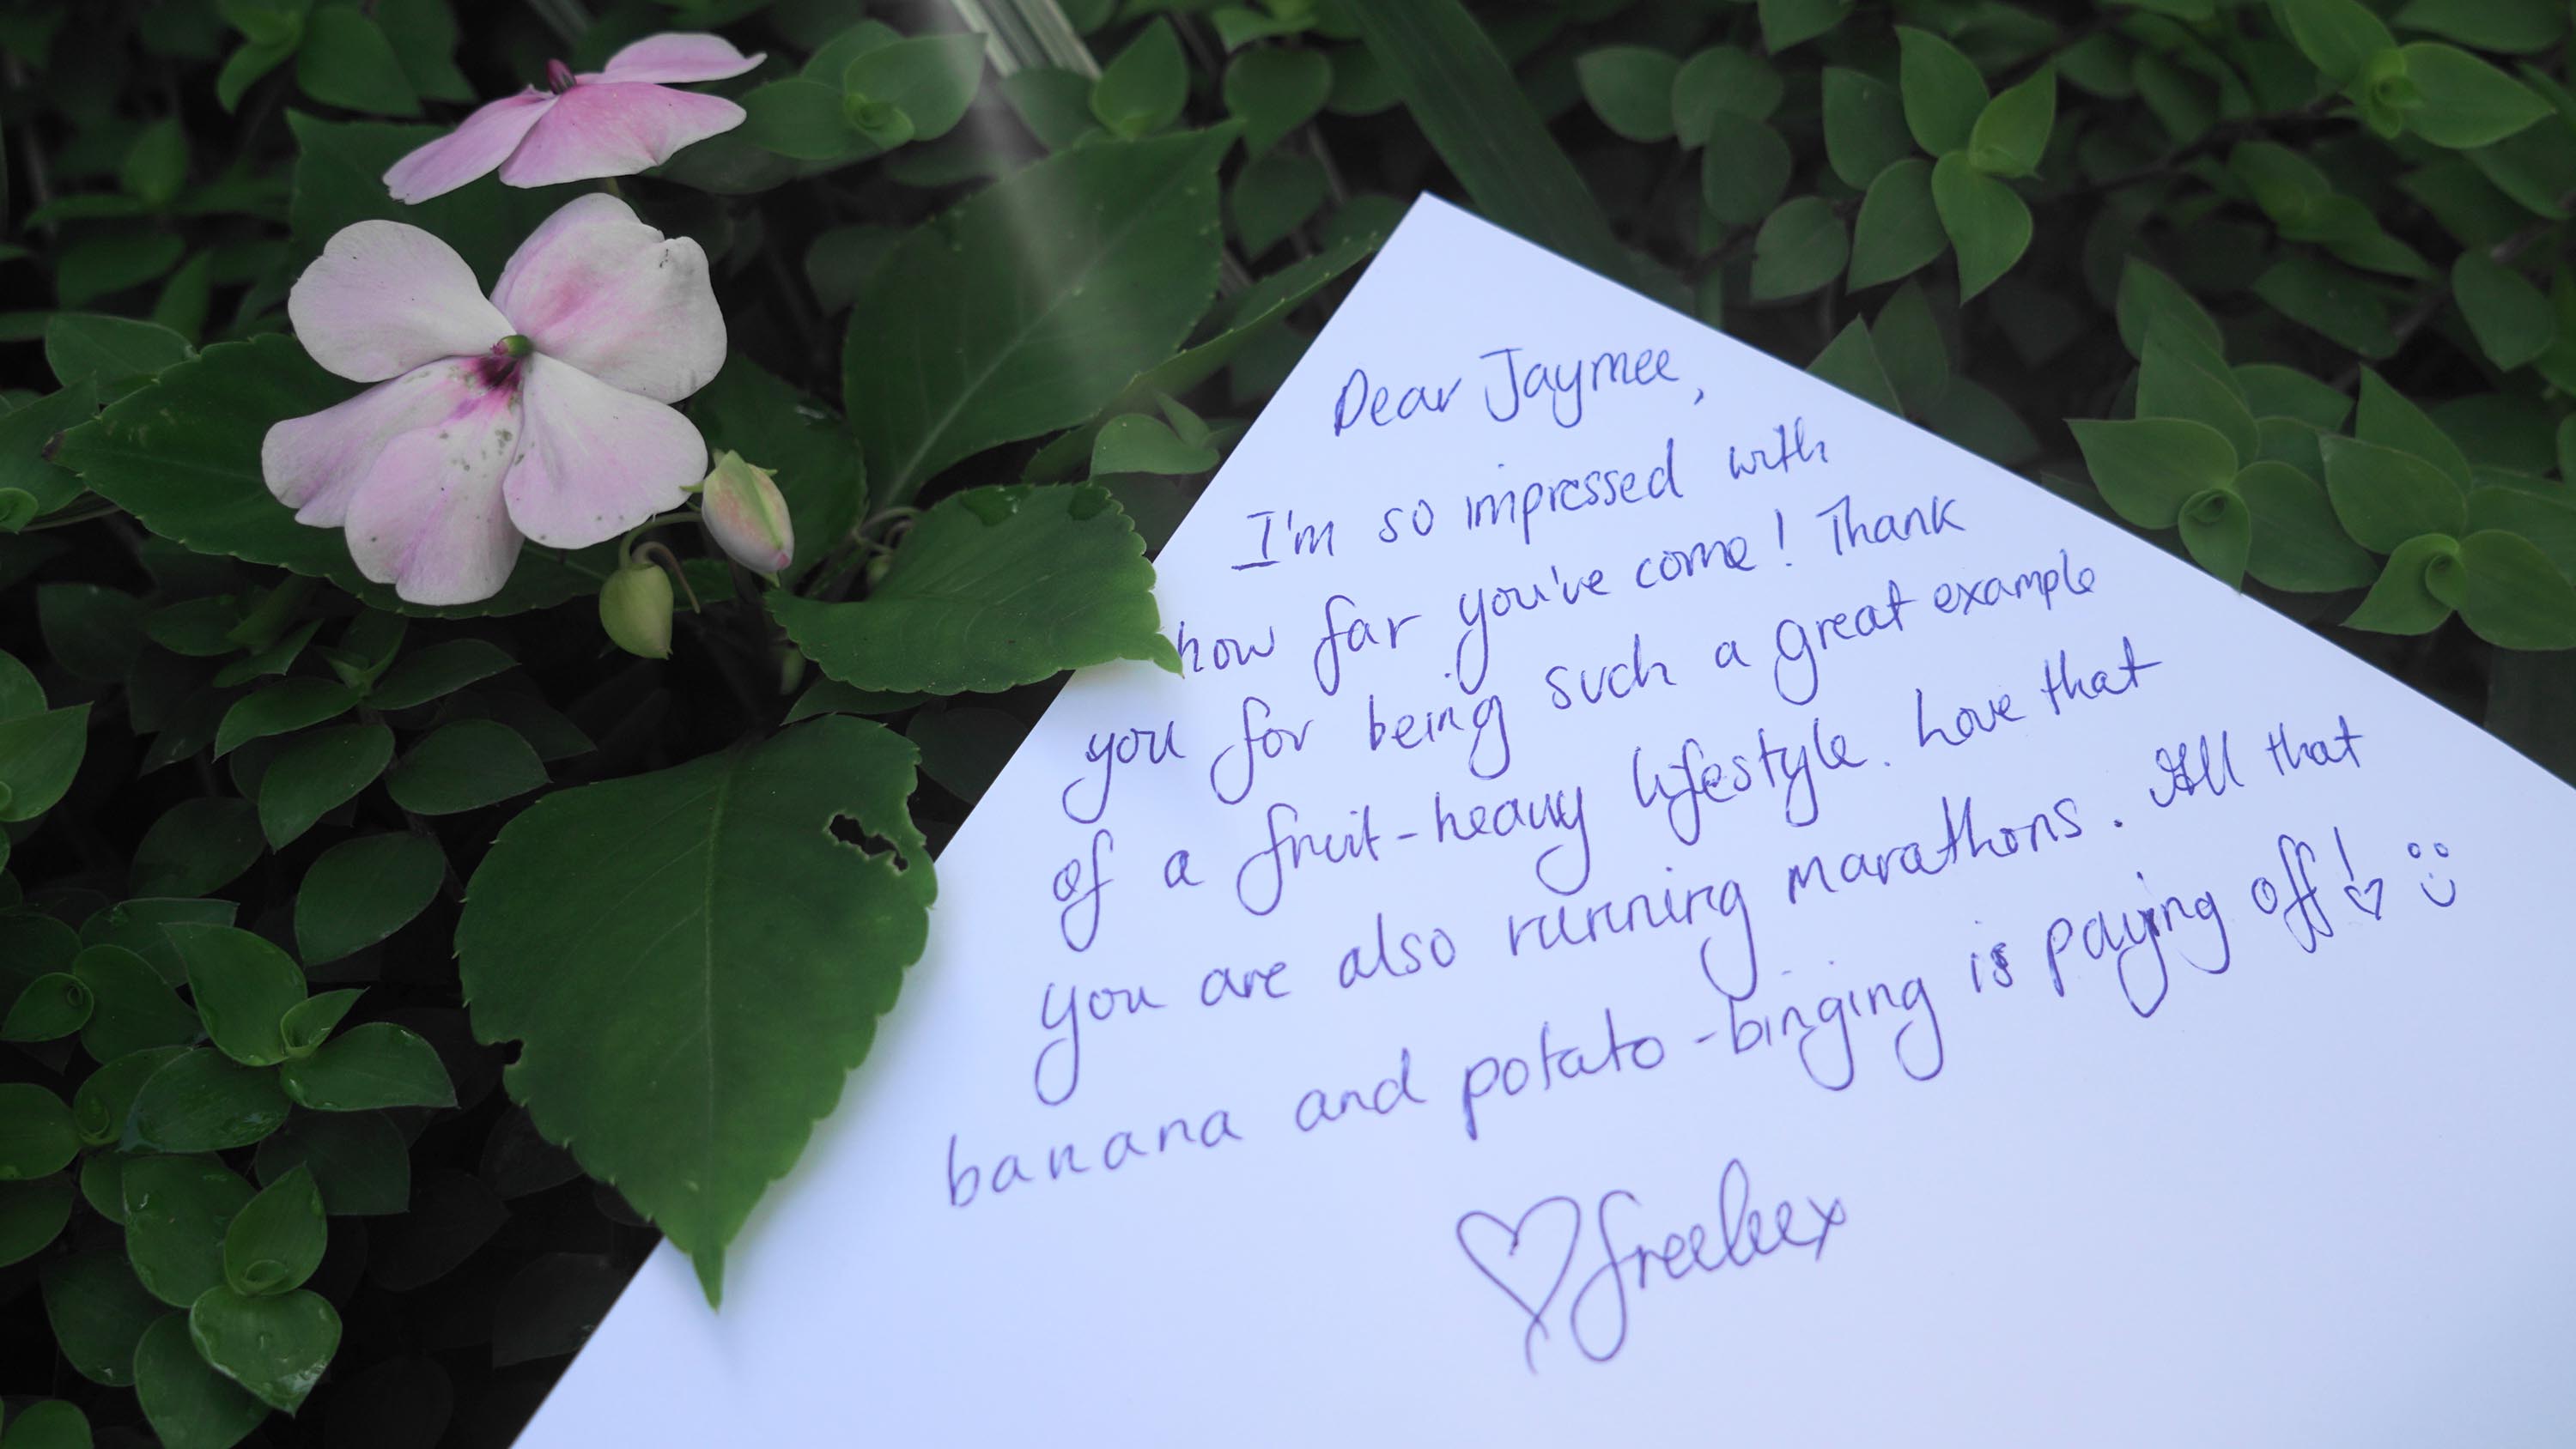 Dear Jaymee,
I'm so impressed with
how far you've come! Thank
you for being such a great example
of a fruit-heavy lifestyle. Love that
you are also running marathons. All that
banana and potato-binging is paying off! ♡ :)
♡ freeleex